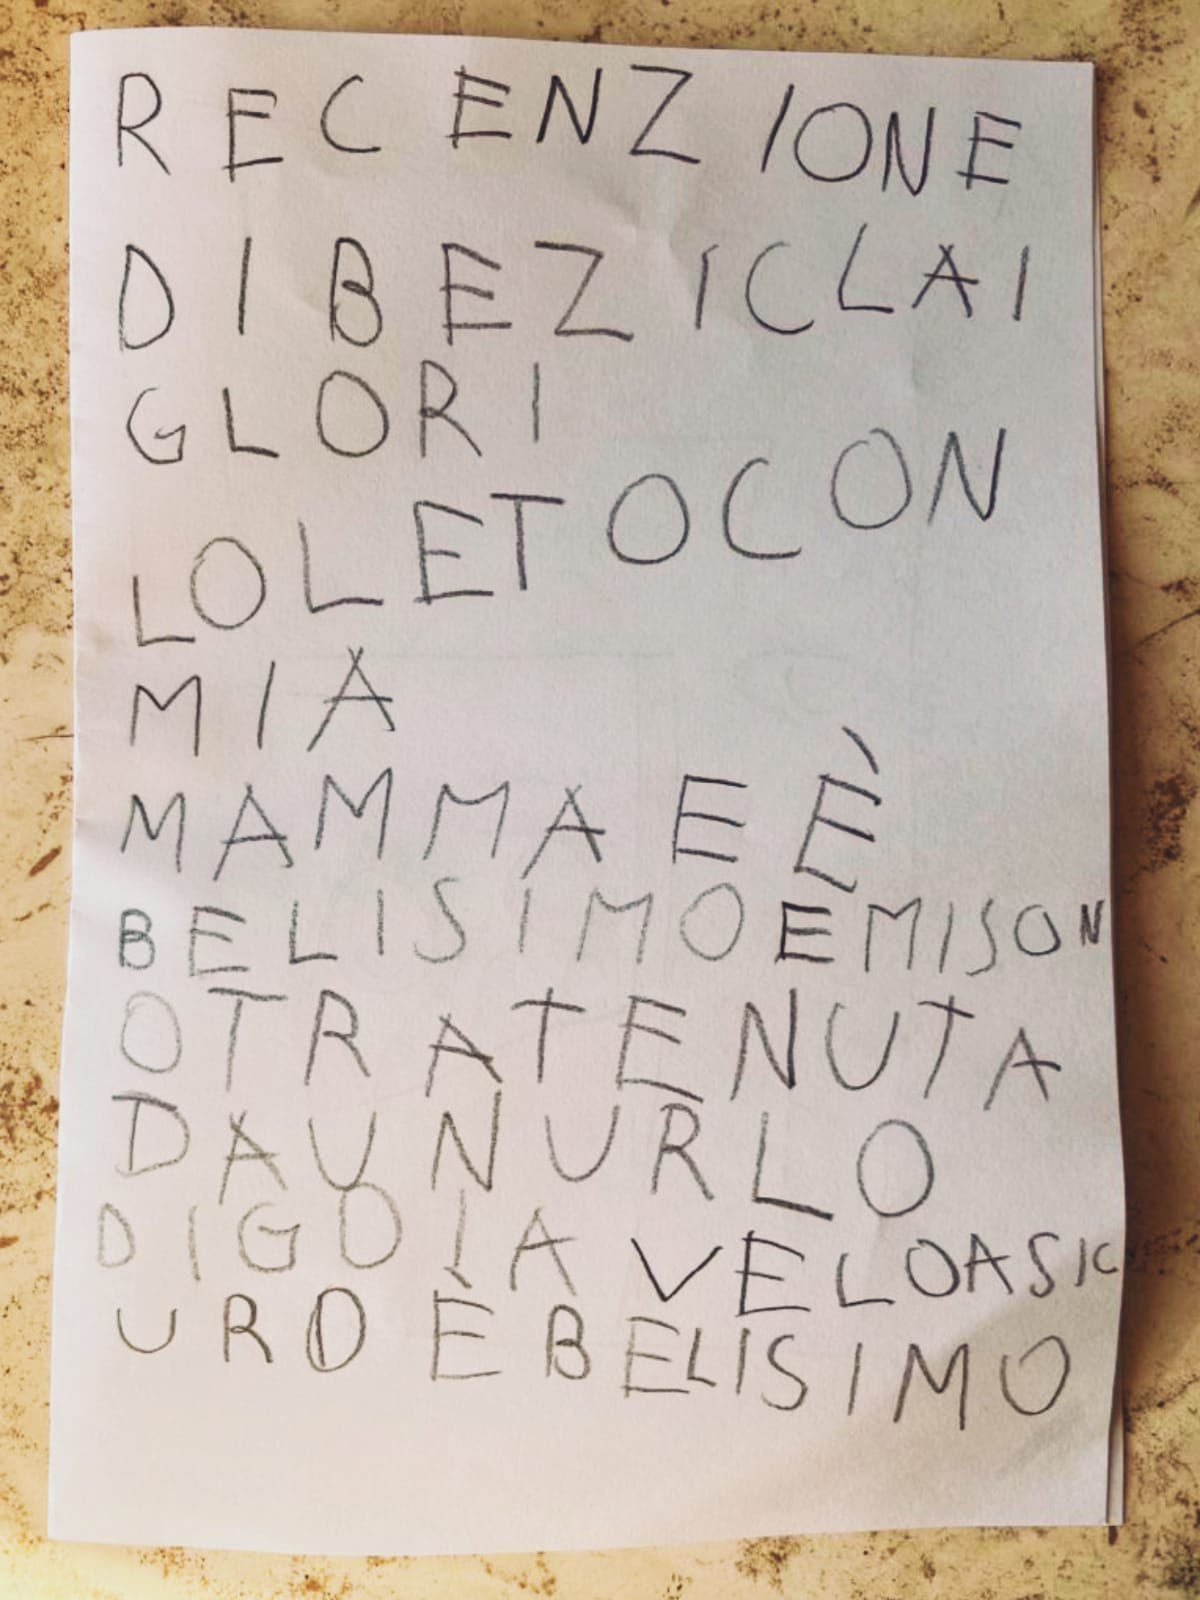 RECENZIONE
DIBEZICLAI
GLORI
LOLETOCON
MIA
MAMMA E È
BELISIMOEMISON
OTRATENUTA
DAUNURLO
DIGOIA VELOASIC
URO È BELISIMO